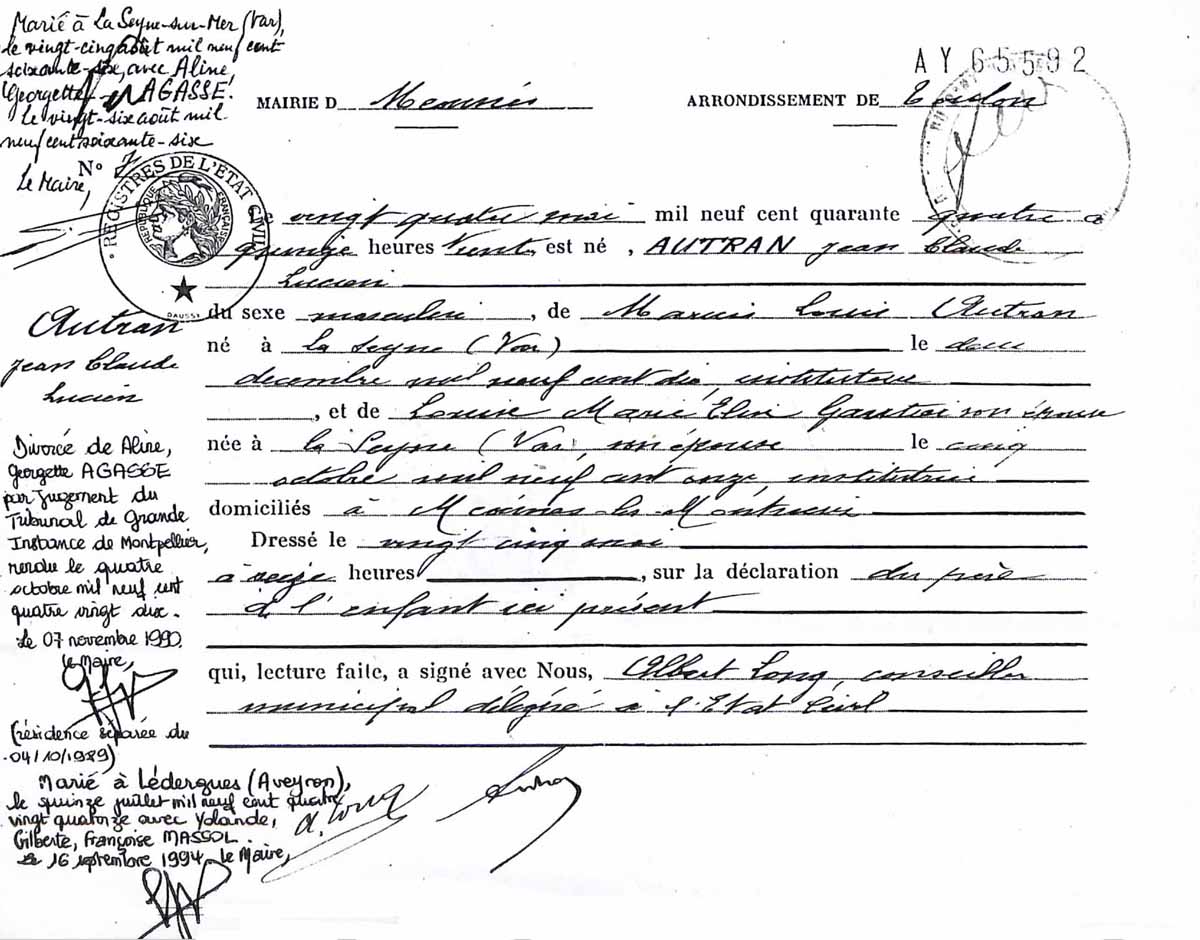 Marié à La Seyne-sur-Mer (Var),
le vingt-cinq août mil neuf cent
soixante-six, avec Aline,
Georgette AGASSE.
Le vingt-six août mil
neuf cent soixante-six
Le Maire,
AY 65592
MAIRIE D
ARRONDISSEMENT DE Toulon
N° 7
REGISTRES DE L'ETAT CIVIL
REPUBLIQUE FRANÇAISE
DAUSSE
Le vingt quatre mai mil neuf cent quarante quatre à
quinze heures vingt est né, AUTRAN Jean Claude
Lucien
du sexe masculin, de Marius Louis Autran
né à La Seyne (Var) le deux
décembre mil neuf cent dix, instituteur
, et de Louise Marie Elise Gautier son épouse
née à la Seyne (Var), son épouse le cinq
octobre mil neuf cent onze, institutrice
domiciliés à Méounes-les-Montrieux
Dressé le vingt cinq mai
à seize heures, sur la déclaration du père
de l'enfant ici présent
qui, lecture faite, a signé avec Nous, Albert Long, conseiller
municipal délégué à l'Etat Civil
Autran
Jean Claude
Lucien
Divorcé de Aline,
Georgette AGASSE
par jugement du
Tribunal de Grande
Instance de Montpellier,
rendu le quatre
octobre mil neuf cent
quatre vingt dix.
Le 07 novembre 1990.
le Maire,
(résidence séparée du
04/10/1989)
Marié à Lédergues (Aveyron),
le quinze juillet mil neuf cent quatre
vingt quatorze avec Yolande,
Gilberte, Françoise MASSOL.
Le 16 septembre 1994 le Maire,
A. Long